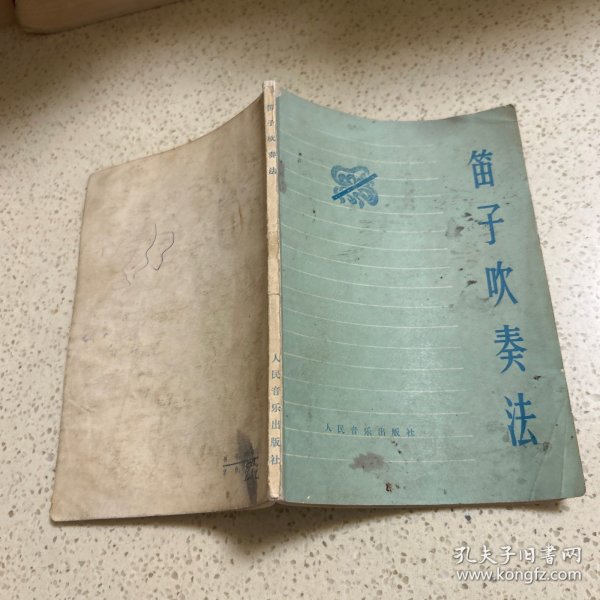 笛子吹奏法
人民音乐出版社
笛子吹奏法
人民音乐出版社
孔夫子旧书网
www.kongfz.com